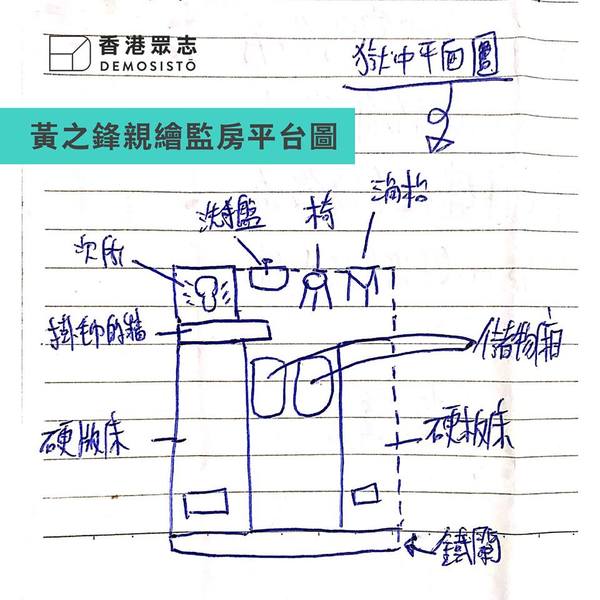 香港眾志
DEMOSISTŌ
獄中平面圖
黃之鋒親繪監房平台圖
洗手盤
椅
次所
掛巾的牆
儲物廂
硬版床
硬板床
鐵闌